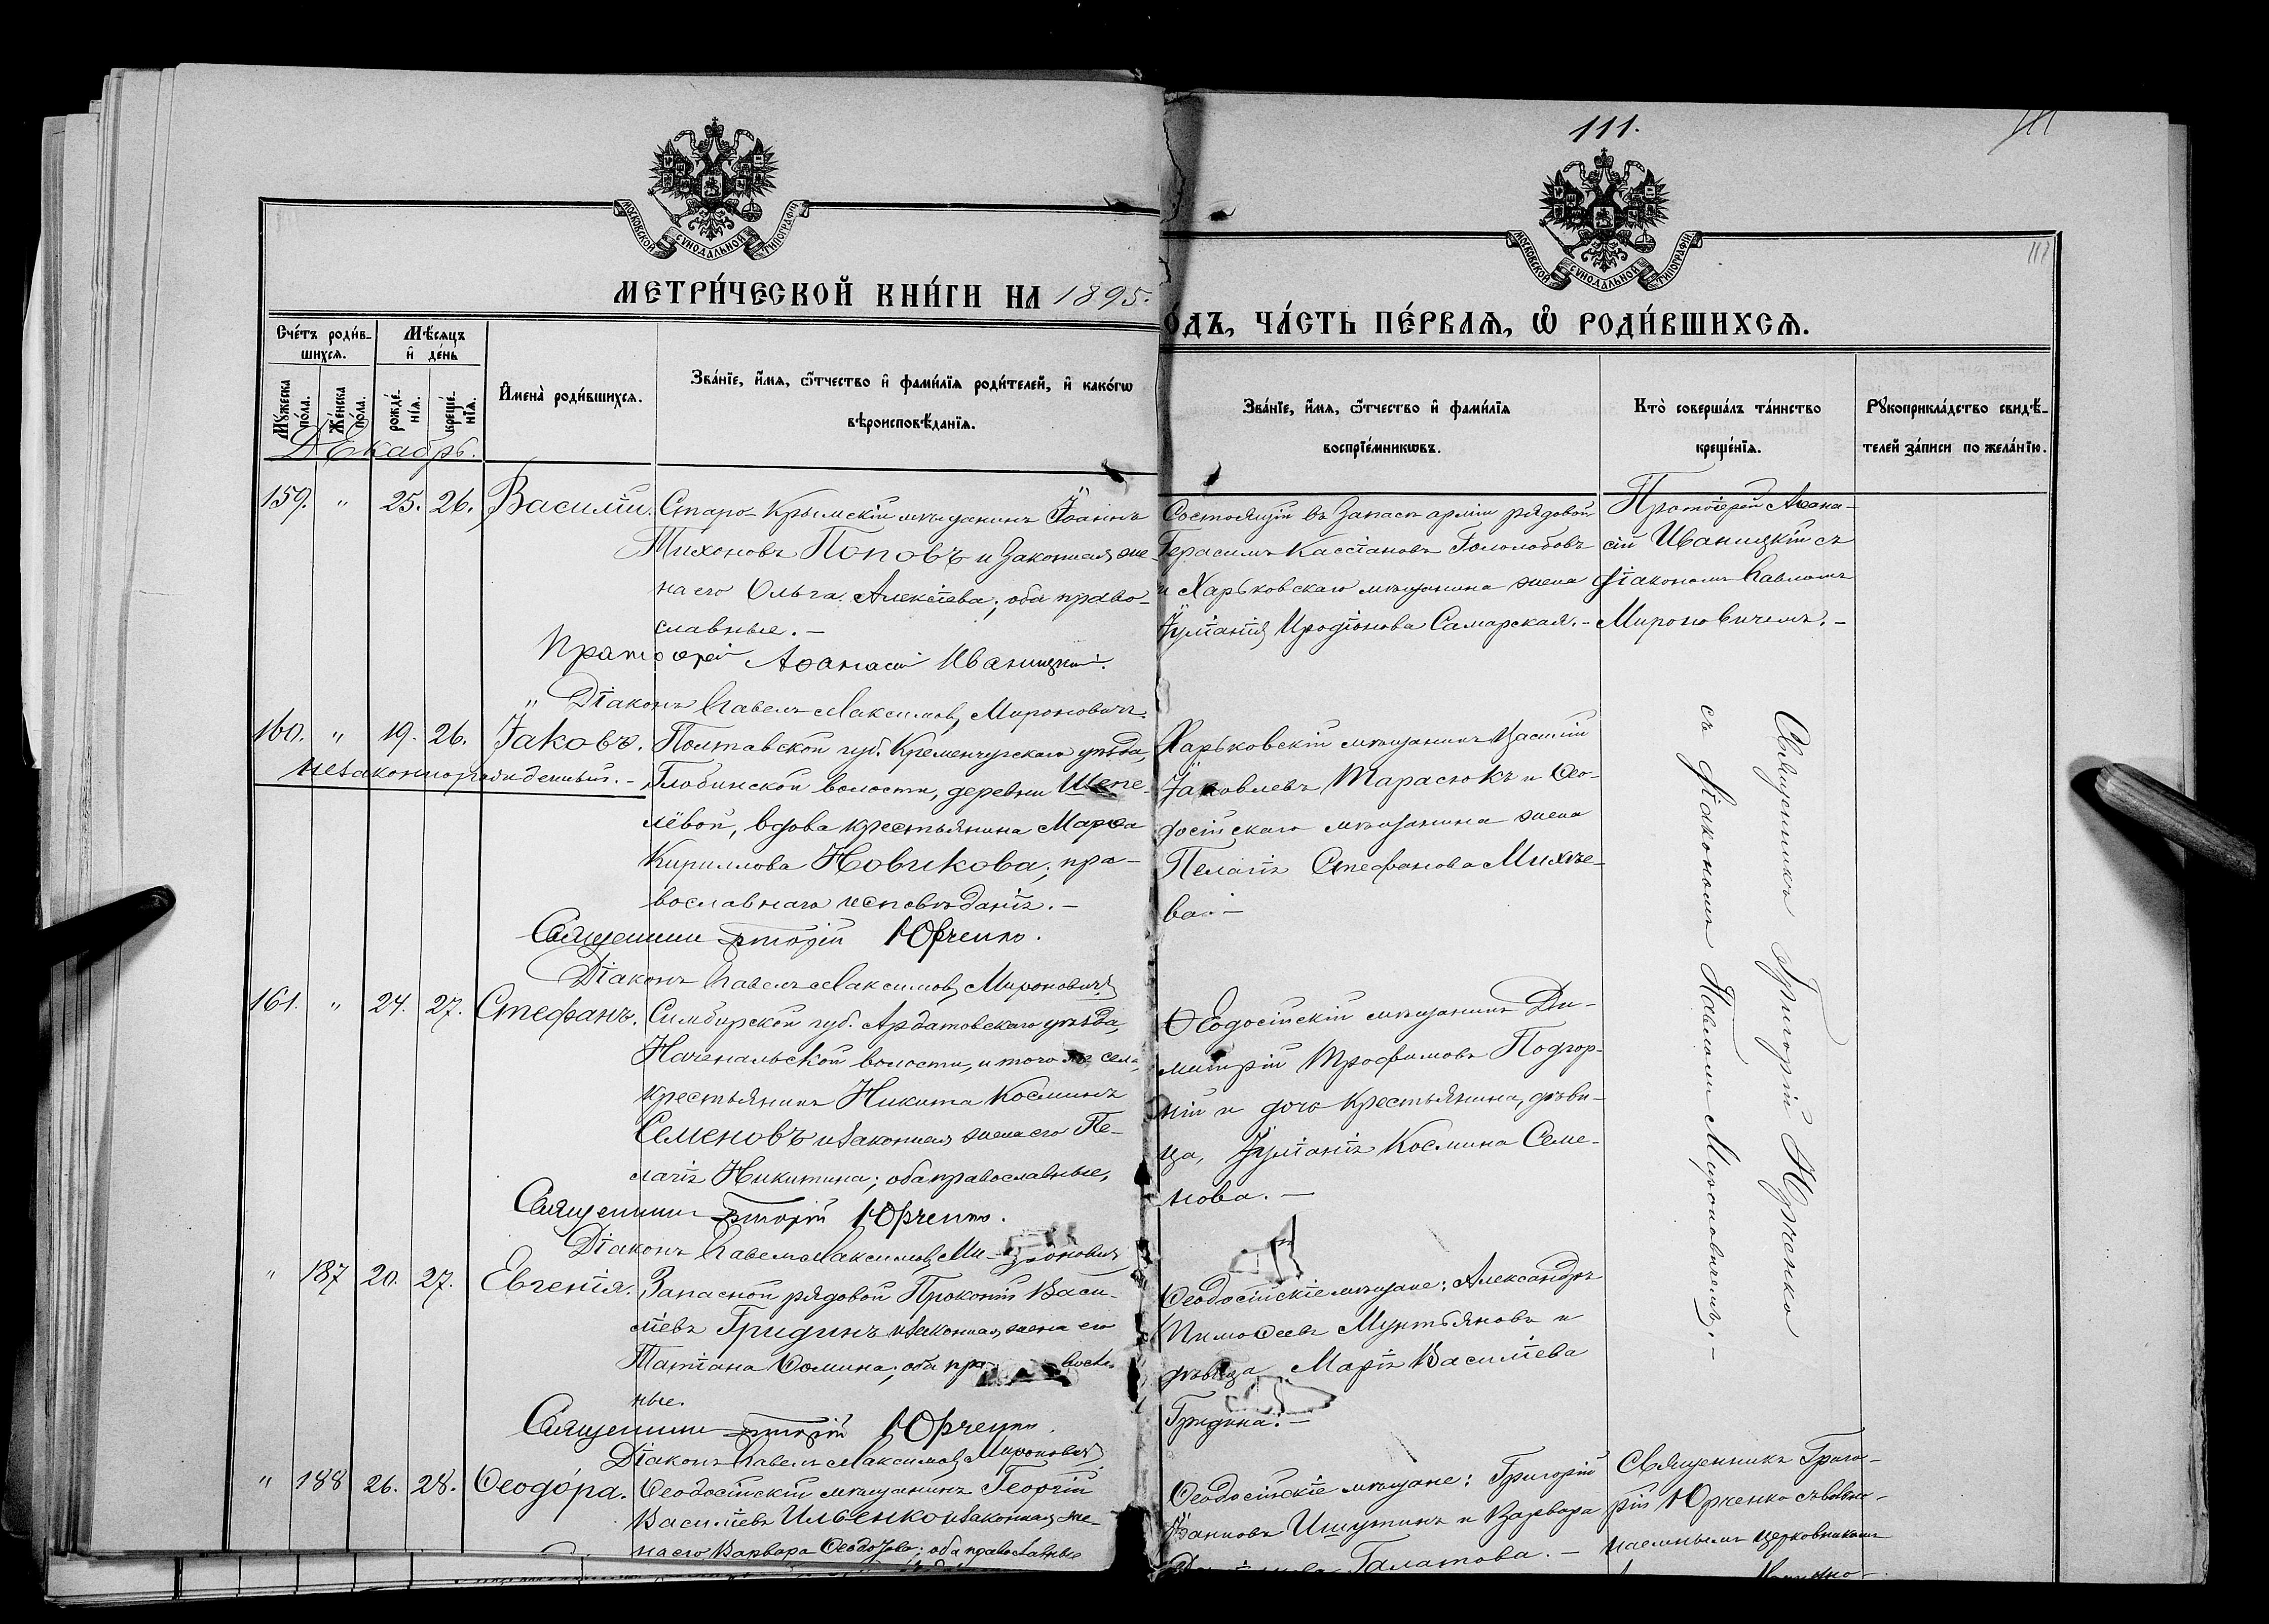 111.
111
117
МОСКОВСКОЙ СѴНОДАЛЬНОЙ ТИПОГРАФІИ
МОСКОВСКОЙ СѴНОДАЛЬНОЙ ТИПОГРАФІИ
МЕТРИ́ЧЕСКОЙ КНИ́ГИ НА 1895.
О́ДЪ, ЧА́СТЬ ПЕ́РВАѦ, Ѿ РОДИ́ВШИХСѦ.
Сче́тъ роди́в-
шихсѧ.
Мѣ́сѧцъ
и҆ де́нь
Мꙋ́жеска по́ла.
Же́нска по́ла.
рожде́нїѧ.
креще́нїѧ.
И҆мена̀ роди́вшихсѧ.
Зва́нїе, и҆́мѧ, ѻ҆́тчество и҆ фами́лїѧ роди́телей, и҆ како́гѡ
вѣроисповѣ́данїѧ.
Зва́нїе, и҆́мѧ, ѻ҆́тчество и҆ фами́лїѧ
воспрїе́мникѡвъ.
Кто̀ соверша́лъ та́инство
креще́нїѧ.
Рꙋкоприкла́дство свидѣ́-
телей за́писи по жела́нїю.
Декабрь.
159. " 25. 26. Василій. Старо-Крымскій мѣщанинъ Іоаннъ
Тихоновъ Поповъ и законная же-
на его Ольга Алексіева; оба право-
славные. –
Протоіерей Аѳанасій Иваницкій.
" Діаконъ Павелъ Максимовъ Мироновичъ.
Состоящій въ запасѣ арміи рядовой
Герасимъ Кассіановъ Гололобовъ
и Харьковскаго мѣщанина жена
Іуліанія Иродіонова Самарская. –
Протоіерей Аѳана-
сій Иваницкій съ
діакономъ Павломъ
Мироновичемъ. –
160. " 19. 26. Іаковъ. Полтавской губ. Кременчугскаго уѣзда,
незаконнорожденный. – Глобинской волости, деревни Шепе-
лёвой, вдова крестьянина Марѳа
Кириллова Новикова; пра-
вославнаго исповѣданія. –
Священник Григорій Юрченко.
Діаконъ Павелъ Максимовъ Мироновичъ
Харьковскій мѣщанинъ Василій
Іаковлевъ Тарасюкъ и Ѳео-
досійскаго мѣщанина жена
Пелагія Стефанова Михѣе-
ва. –
Священникъ Григорій Юрченко
съ діакономъ Павломъ Мироновичемъ. –
161. " 24. 27. Стефанъ. Симбирской губ. Ардатовскаго уѣзда,
Наченальской волости, и того же села,
крестьянинъ Никита Косминъ
Семеновъ и законная жена его Пе-
лагія Никитина; оба православные,
Священник Григорій Юрченко.
Діаконъ Павелъ Максимовъ Мироновичъ
Ѳеодосійскій мѣщанинъ Ди-
митрій Трофимовъ Подгор-
ній и дочь крестьянина, дѣви-
ца, Іуліанія Космина Семе-
нова. –
" 187 20. 27. Евгенія. Запасной рядовой Прокопій Васи-
ліевъ Гридинъ и законная жена его
Татіана Ѳомина; оба пра вослав
ные.
Священник Григорій Юрченко.
Діаконъ Павелъ Максимовъ Мироновичъ
Ѳеодосійскіе мѣщане: Александръ
Тимоѳеевъ Мунтьяновъ и
дѣвица Марія Василіева
Гридина. –
" 188 26. 28. Ѳеодо́ра. Ѳеодосійскій мѣщанинъ Георгій
Василіевъ Ильенко и законная же-
на его Варвара Ѳеодорова; оба православные
Ѳеодосійскіе мѣщане: Григорій
Іоанновъ Ишутинъ и Варвара
Галатова. –
Священникъ Григо-
рій Юрченко съ вольно-
наемнымъ церковникомъ